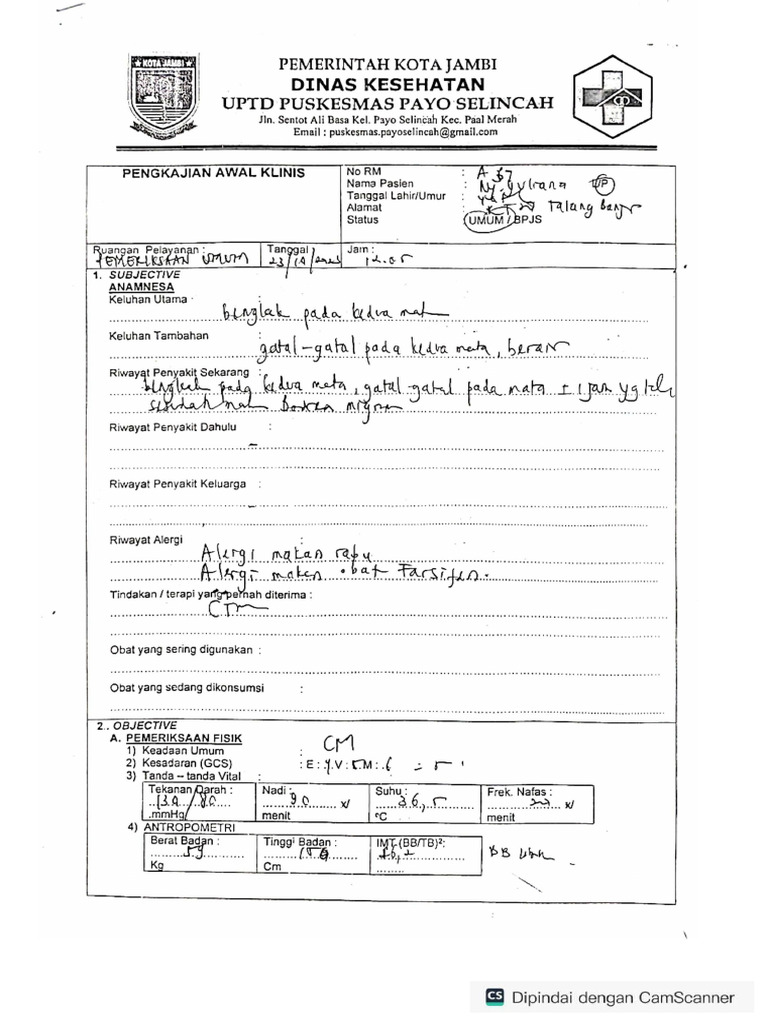 KOTA JAMBI
PEMERINTAH KOTA JAMBI
DINAS KESEHATAN
UPTD PUSKESMAS PAYO SELINCAH
Jln. Sentot Ali Basa Kel. Payo Selincah Kec. Paal Merah
Email : puskesmas.payoselincah@gmail.com
PENGKAJIAN AWAL KLINIS
No RM :
Nama Pasien : Ny.
Tanggal Lahir/Umur :
Alamat : Talang
Status : UMUM / BPJS
Ruangan Pelayanan :
PEMERIKSAAN UMUM
Tanggal
23/10/2023
Jam :
12.05
1. SUBJECTIVE
ANAMNESA
Keluhan Utama :
bengkak pada kedua mata
Keluhan Tambahan :
gatal-gatal pada kedua mata, berair
Riwayat Penyakit Sekarang :
bengkak pada kedua mata, gatal-gatal pada mata ± 1 jam yg
sesudah
Riwayat Penyakit Dahulu :
–
Riwayat Penyakit Keluarga :
–
Riwayat Alergi :
Alergi makan
Alergi makan obat Farsifen.
Tindakan / terapi yang pernah diterima :
CTM
Obat yang sering digunakan :
Obat yang sedang dikonsumsi :
2.. OBJECTIVE
A. PEMERIKSAAN FISIK
1) Keadaan Umum : CM
2) Kesadaran (GCS) : E : 4 V : 5 M : 6 = 15
3) Tanda – tanda Vital :
Tekanan Darah :
130/80
mmHg
Nadi :
90 x/
menit
Suhu :
36,5
°C
Frek. Nafas :
x/
menit
4) ANTROPOMETRI
Berat Badan :
59
Kg
Tinggi Badan :
150
Cm
IMT (BB/TB)²:
26,2
BB
CS Dipindai dengan CamScanner